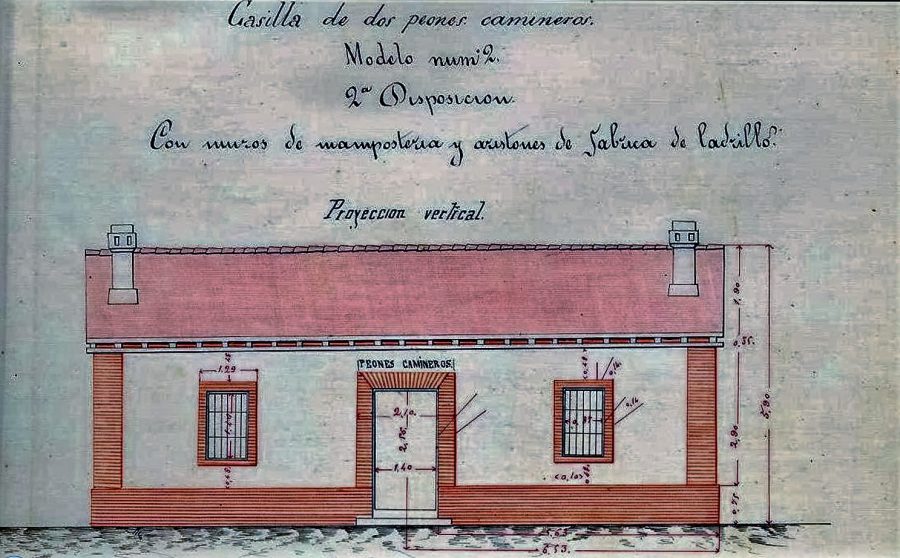 Casilla de dos peones camineros.
Modelo num.º 2.
2ª Disposicion.
Con muros de mamposteria y aristones de fabrica de ladrillo.
Proyeccion vertical.
PEONES CAMINEROS
1,29
2,10
1,40
0,14
0,14
1,90
0,35
2,90
5,90
0,75
6,53